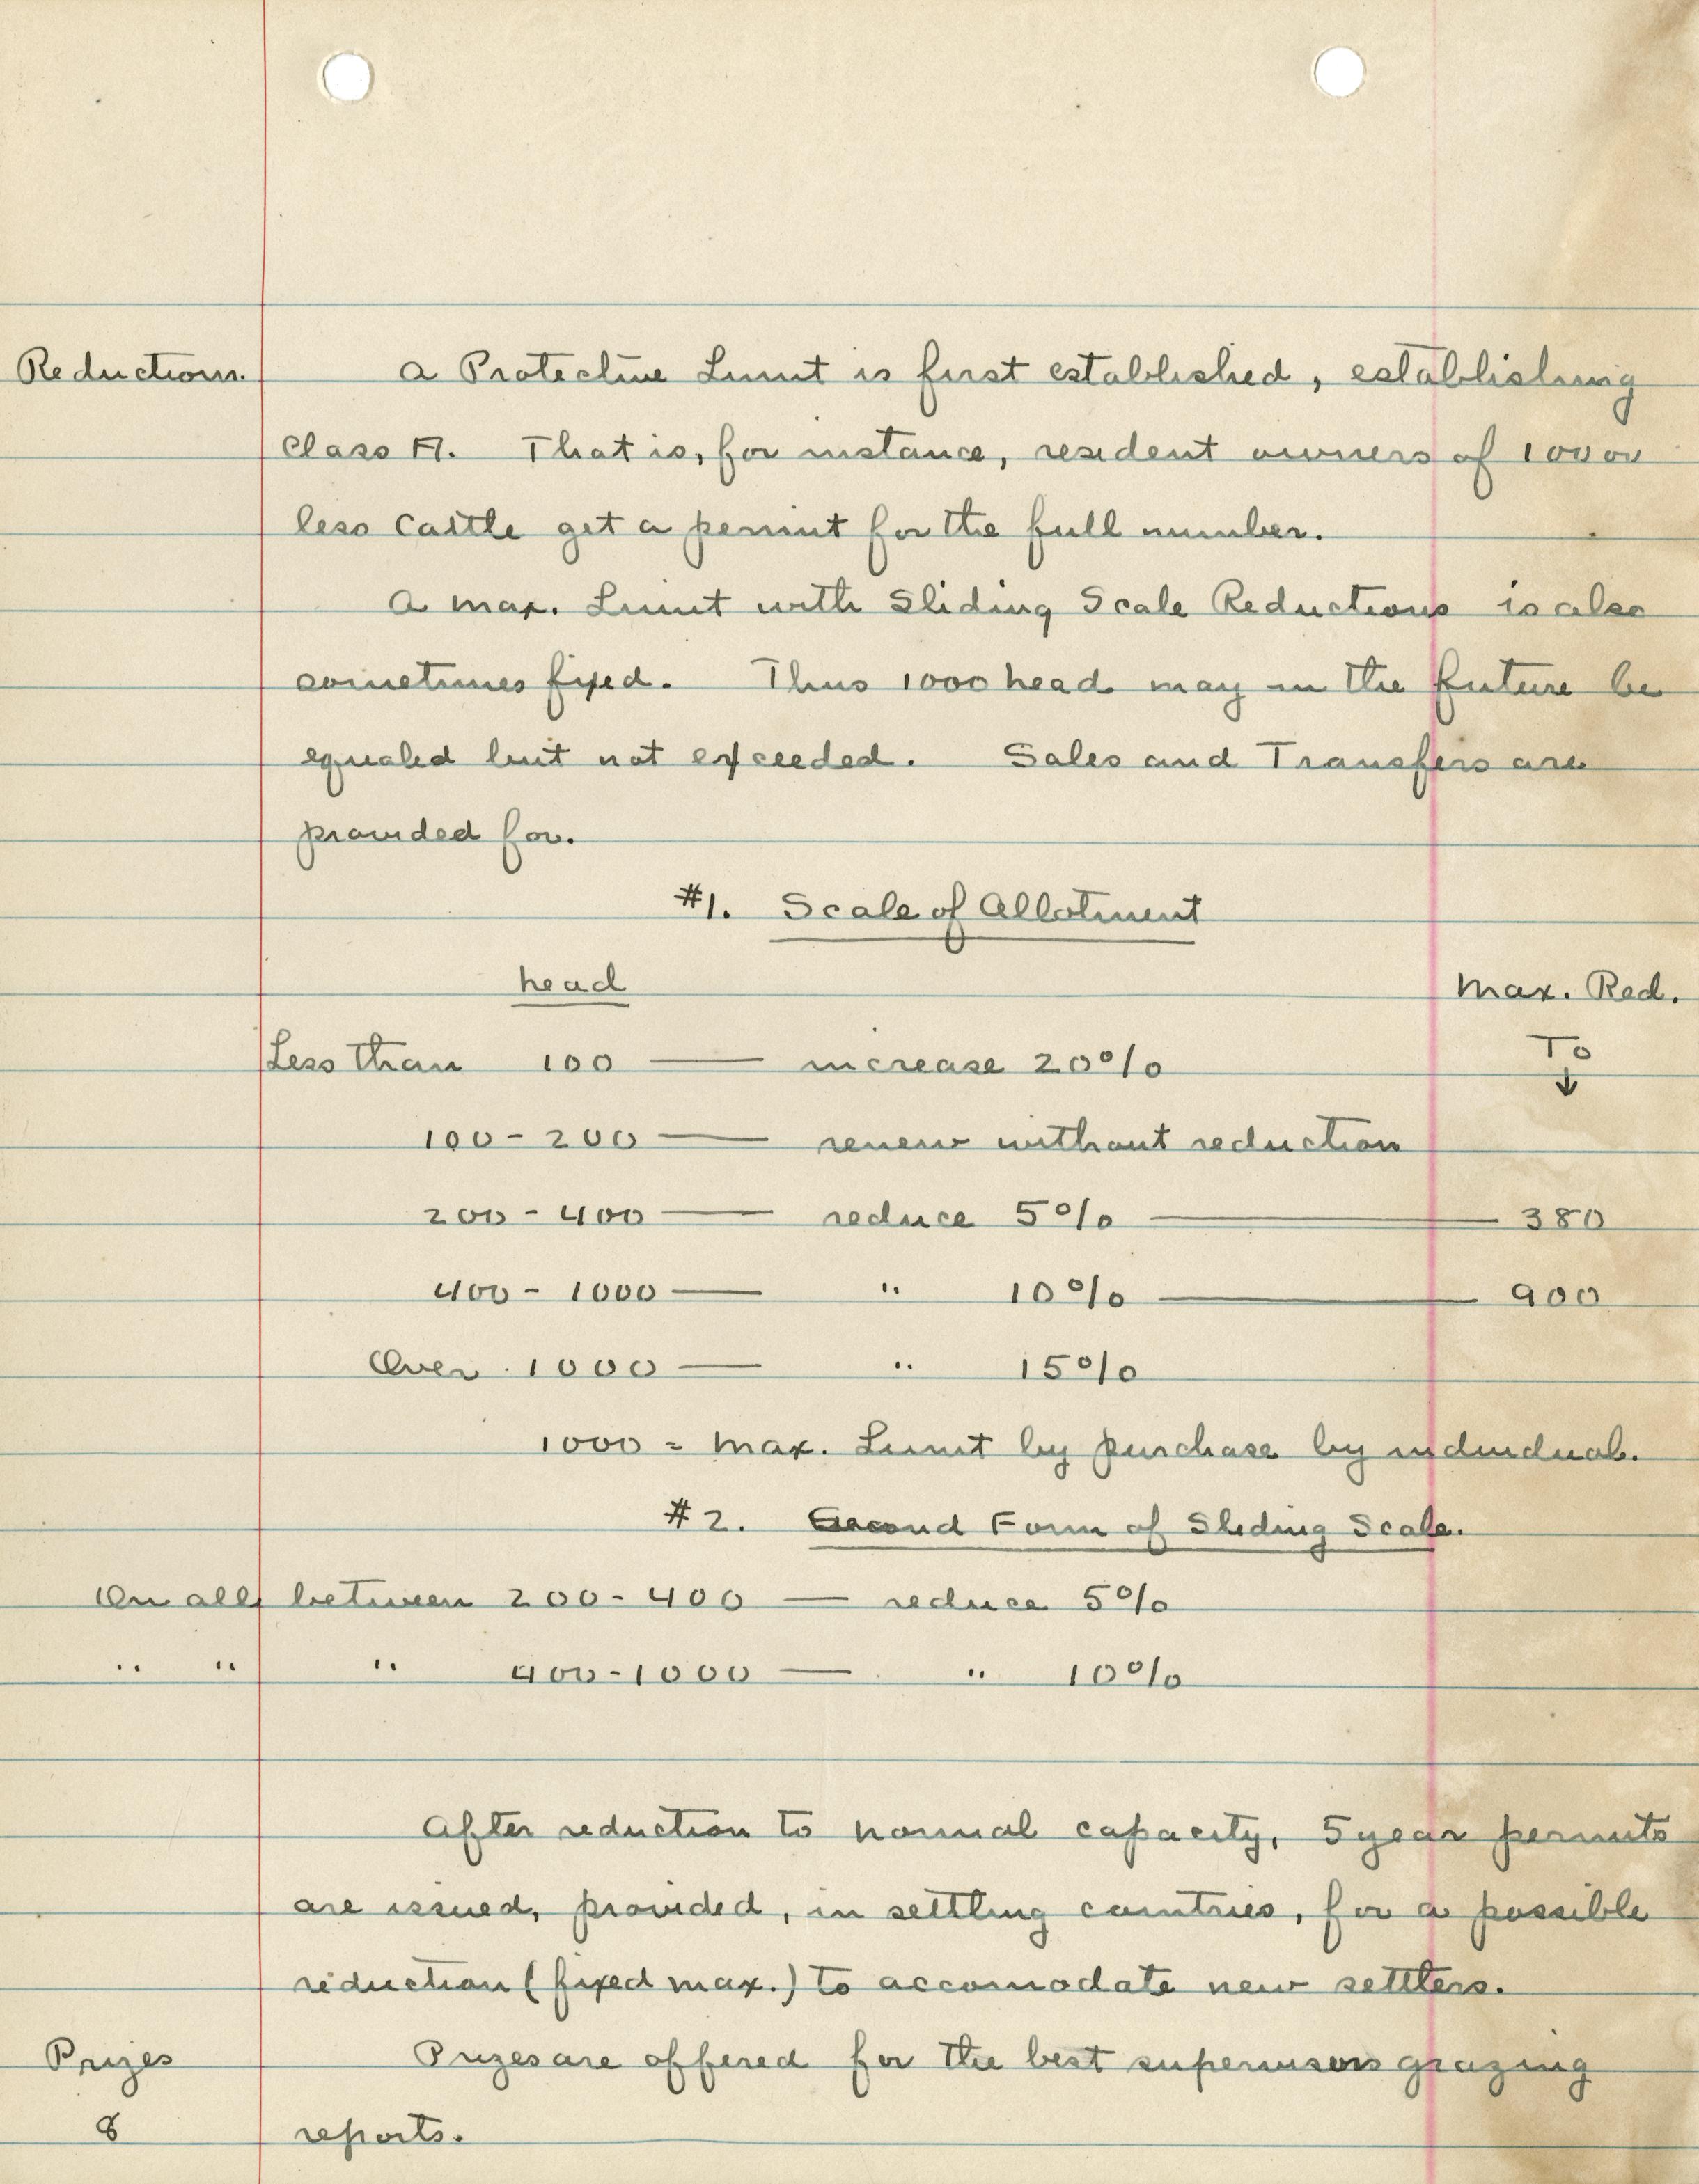 Reductions. a Protective Limit is first established, establishing
Class A. That is, for instance, resident owners of 100 or
less cattle get a permit for the full number.
A max. Limit with Sliding Scale Reductions is also
sometimes fixed. Thus 1000 head may in the future be
equaled but not exceeded. Sales and Transfers are
provided for.
#1. Scale of Allotment
head Max. Red.
Less than 100 — increase 20% To
↓
100 - 200 — renew without reduction
200 - 400 — reduce 5% — 380
400 - 1000 — " 10% — 900
Over 1000 — " 15%
1000 = Max. Limit by purchase by individual.
#2. Second Form of Sliding Scale.
On all between 200 - 400 — reduce 5%
" " " 400 - 1000 — " 10%
After reduction to normal capacity, 5 year permits
are issued, provided, in settling countries, for a possible
reduction (fixed max.) to accomodate new settlers.
Prizes Prizes are offered for the best supervisors grazing
8 reports.